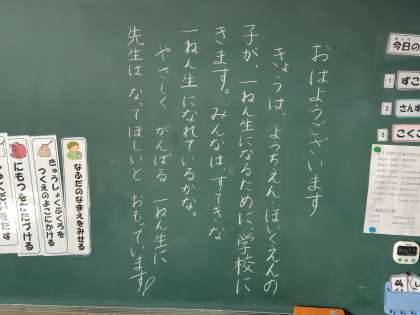 おはようございます
きょうは、ようちえん ほいくえんの
子が、一ねん生になるために、学校に
きます。みんなは すてきな
一ねん生になれているかな。
やさしく がんばる 一ねん生に
先生は なってほしいと おもっています
今日の
1 ずこ
2 さんす
3 こくご
なふだのなまえをみせる
きゅうしょくぶくろを
つくえのよこにかける
にもつをかたづける